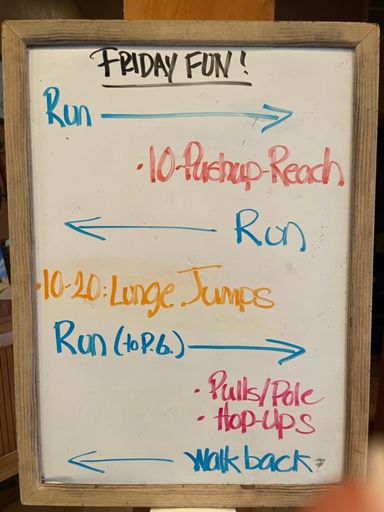 FRIDAY FUN!
Run
· 10-Pushup-Reach
Run
· 10-20: Lunge Jumps
Run (to P.G.)
· Pulls/Pole
· Hop-Ups
Walk back